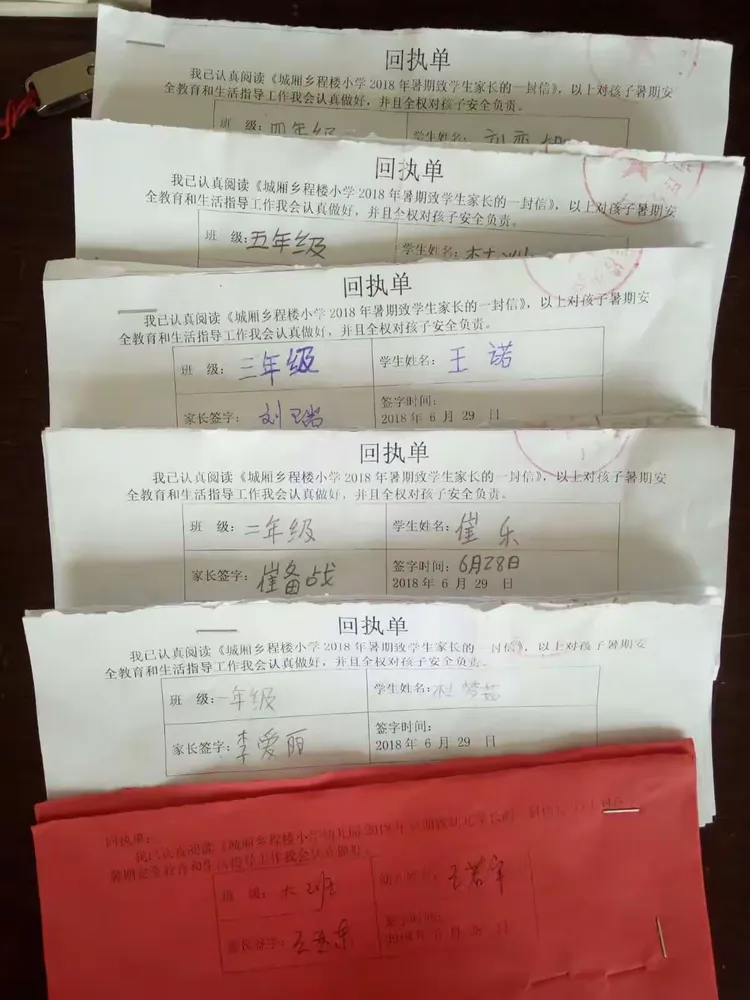 回执单
我已认真阅读《城厢乡程楼小学2018年暑期致学生家长的一封信》，以上对孩子暑期安
全教育和生活指导工作我会认真做好，并且全权对孩子安全负责。
班 级：四年级 学生姓名：刘
回执单
我已认真阅读《城厢乡程楼小学2018年暑期致学生家长的一封信》，以上对孩子暑期安
全教育和生活指导工作我会认真做好，并且全权对孩子安全负责。
班 级：五年级 学生姓名：
回执单
我已认真阅读《城厢乡程楼小学2018年暑期致学生家长的一封信》，以上对孩子暑期安
全教育和生活指导工作我会认真做好，并且全权对孩子安全负责。
班 级：三年级 学生姓名：王诺
签字时间：
家长签字：刘 2018年 6 月 29 日
回执单
我已认真阅读《城厢乡程楼小学2018年暑期致学生家长的一封信》，以上对孩子暑期安
全教育和生活指导工作我会认真做好，并且全权对孩子安全负责。
班 级：二年级 学生姓名：崔乐
签字时间：6月28日
家长签字：崔备战 2018年 6 月 29 日
回执单
我已认真阅读《城厢乡程楼小学2018年暑期致学生家长的一封信》，以上对孩子暑期安
全教育和生活指导工作我会认真做好，并且全权对孩子安全负责。
班 级：一年级 学生姓名：杜梦茹
签字时间：
家长签字：李爱丽 2018年 6 月 29 日
回执单：
我已认真阅读《城厢乡程楼小学幼儿园2018年暑期致幼儿家长的一封信》，以上对孩
暑期安全教育和生活指导工作我会认真做好。
班 级：大班 幼儿姓名：王若
签字时间：
家长签字：王 2018年 6 月 日